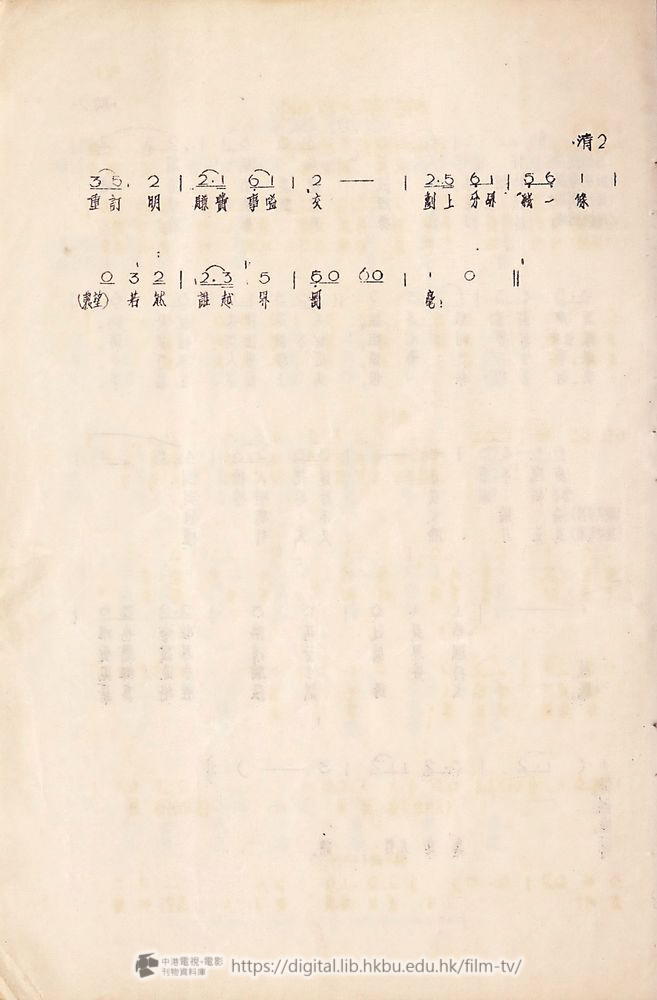 ·清2
3 5. 2 | 2·1 6 1 | 2 —— | 2·5 6 1 | 5 6 1 |
重訂 明 賬費事嗌 交 劃上分界 線一 條
0 3 2 | 2·3 5 | 50 60 | 1 0 ‖
若 然 誰越 界 罰 毫!
中港電視·電影
刊物資料庫
https://digital.lib.hkbu.edu.hk/film-tv/